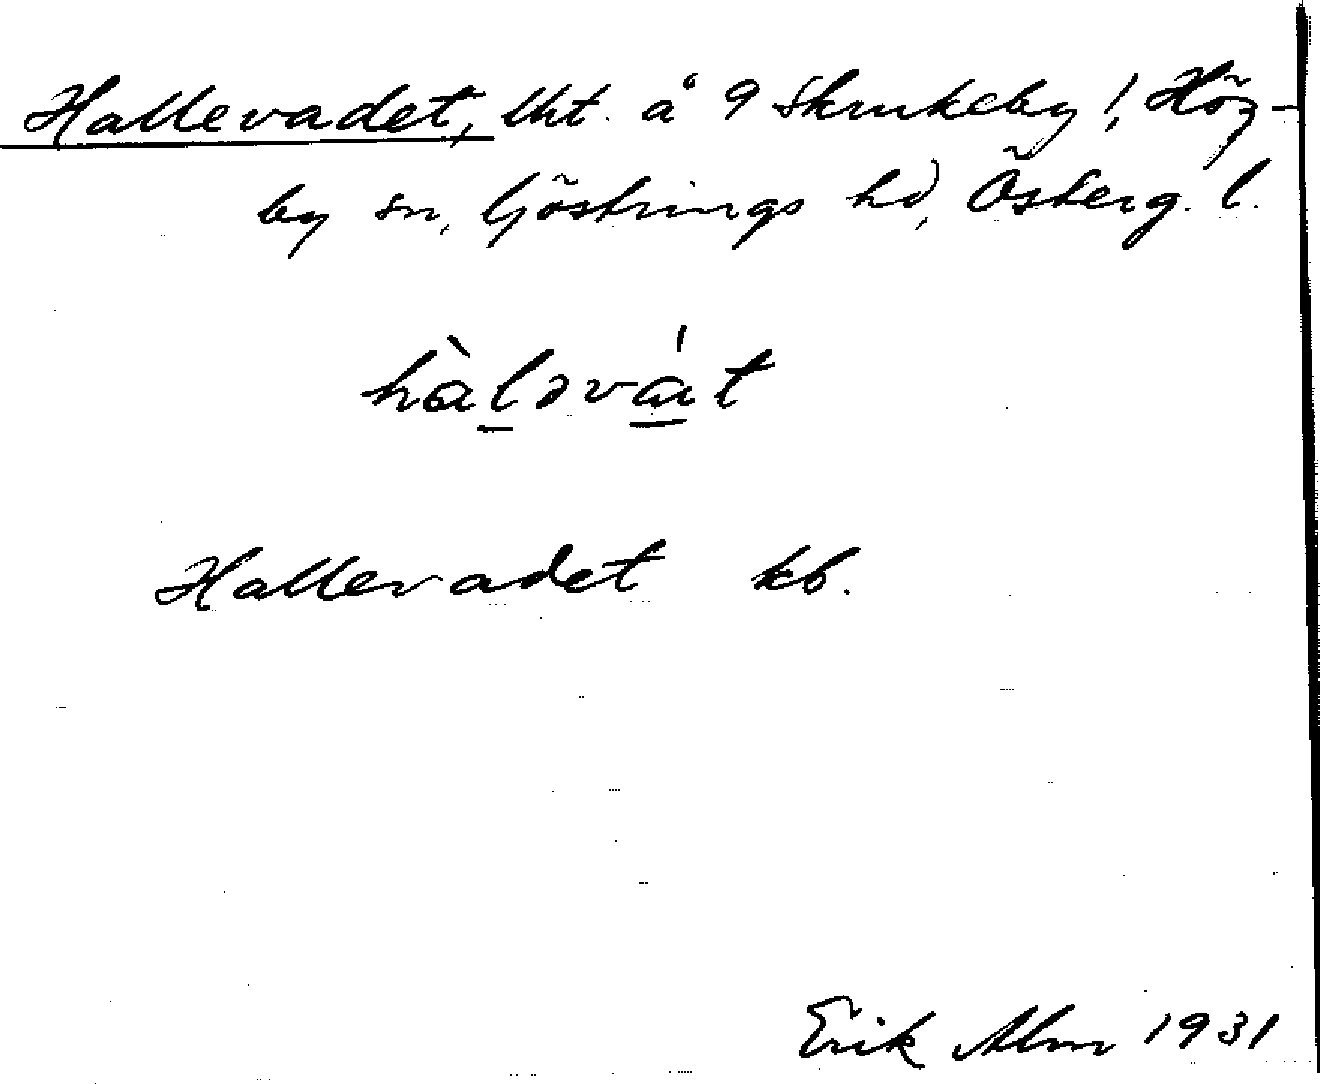 Hallevadet, lht. å 9 Skrukeby!, Hög-
by sn, Göstrings hd, Österg. l.
hàləvát
Hallevadet kb.
Erik Alm 1931